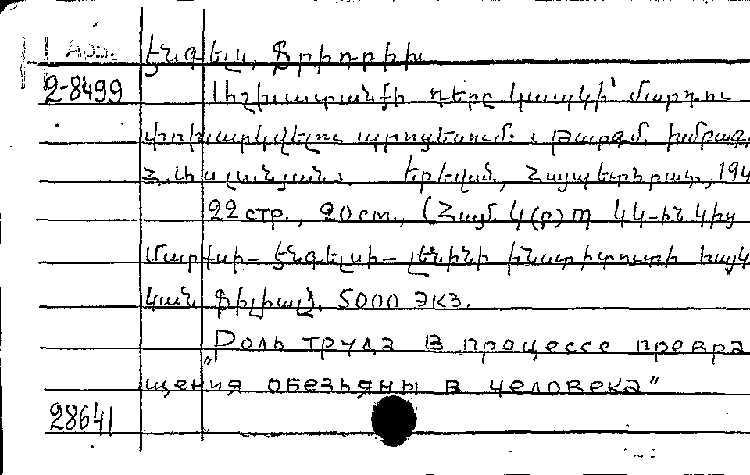 Էնգելս, Ֆրիդրիխ
2-8499 Աշխատանքի դերը կապկի՝ մարդու
փոխարկվելու պրոցեսում: Թարգմ. խմբագ.
Երևան, Հայպետհրատ, 194
22 стр., 20 см., (Համ. Կ(բ)Պ ԿԿ-ին կից
Մարքսի-Էնգելսի-Լենինի ինստիտուտի հայկ
կան ֆիլիալ). 5000 экз.
„Роль труда в процессе превра
щения обезьяны в человека"
28641